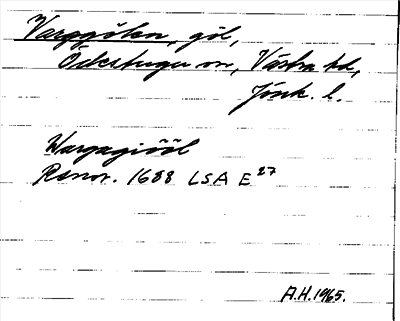 Varggölen, göl,
Ödestugu sn, Västra hd,
Jönk. l.
Wargagiööl
Renov. 1688 LSA E 27
A.H. 1965.